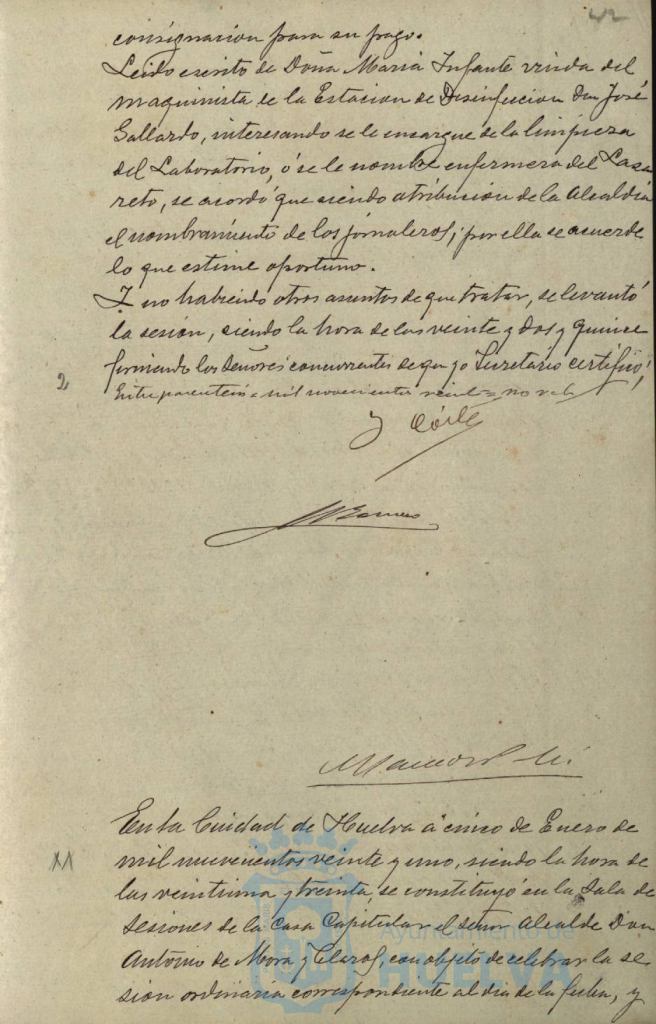 42
consignacion para su pago.
Leido escrito de Doña Maria Infante viuda del
maquinista de la Estacion de Desinfeccion Don José
Gallardo, interesando se le encargue de la limpieza
del Laboratorio, ó se le nombre enfermera del Laza
reto, se acordó que siendo atribucion de la Alcaldia
el nombramiento de los jornaleros, por ella se acuerde
lo que estime oportuno.
Y no habiendo otros asuntos de que tratar, se levantó
la sesion, siendo la hora de las veinte y dos y quince
firmando los Señores concurrentes de que yo Secretario certifico;
2
Entre parentesis = mil novecientos veinte = no vale
En la Ciudad de Huelva á cinco de Enero de
mil novecientos veinte y uno, siendo la hora de
las veintiuna y treinta, se constituyó en la Sala de
Sesiones de la Casa Capitular el señor Alcalde Don
Antonio de Mora y Claros, con objeto de celebrar la se
sion ordinaria correspondiente al dia de la fecha, y
Ayuntamiento de
HUELVA